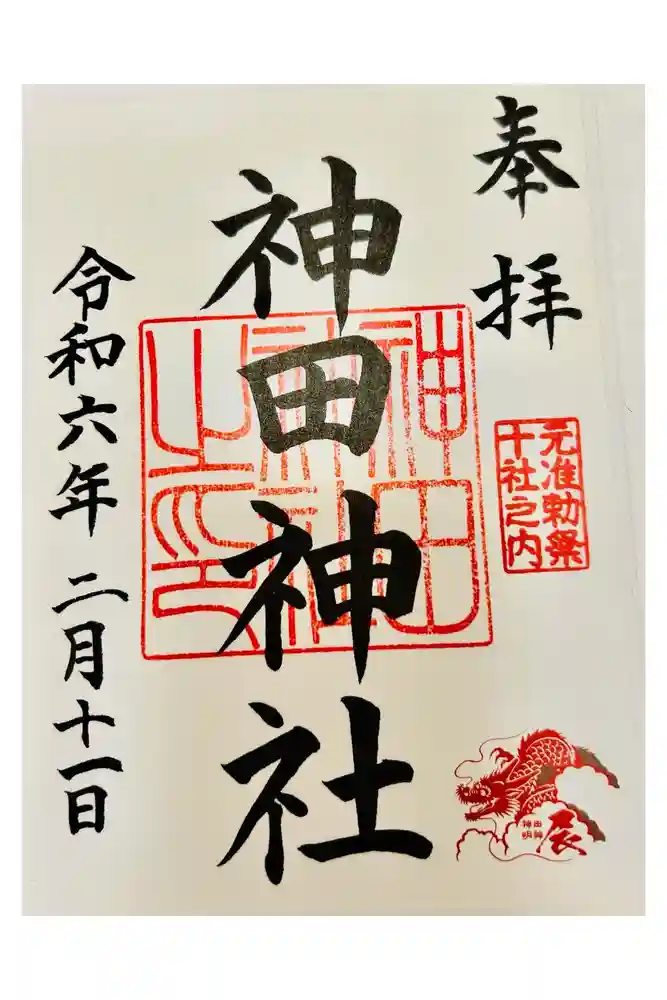 奉拝
元准勅祭
十社之内
神田神社
神田
神社
之印
令和六年 二月十一日
神田
明神
辰